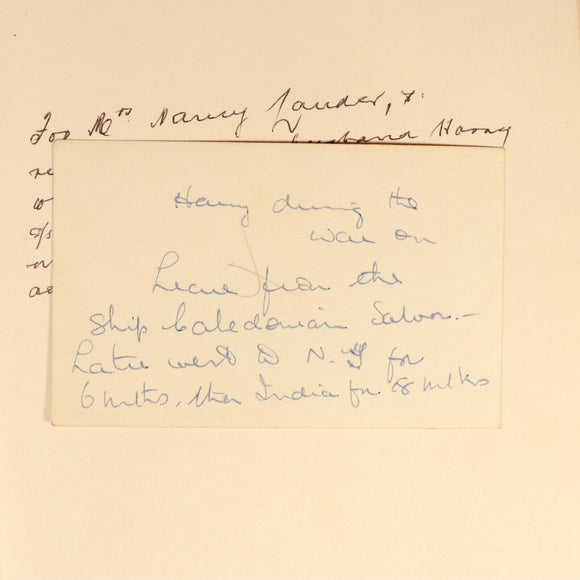 For Mrs Nancy Lauder, &
husband Harry
re
w
Harry during the
war on
Leave from the
Ship Caledonian Salvor. —
Later went to N.Y for
6 mths, then India for 8 mths